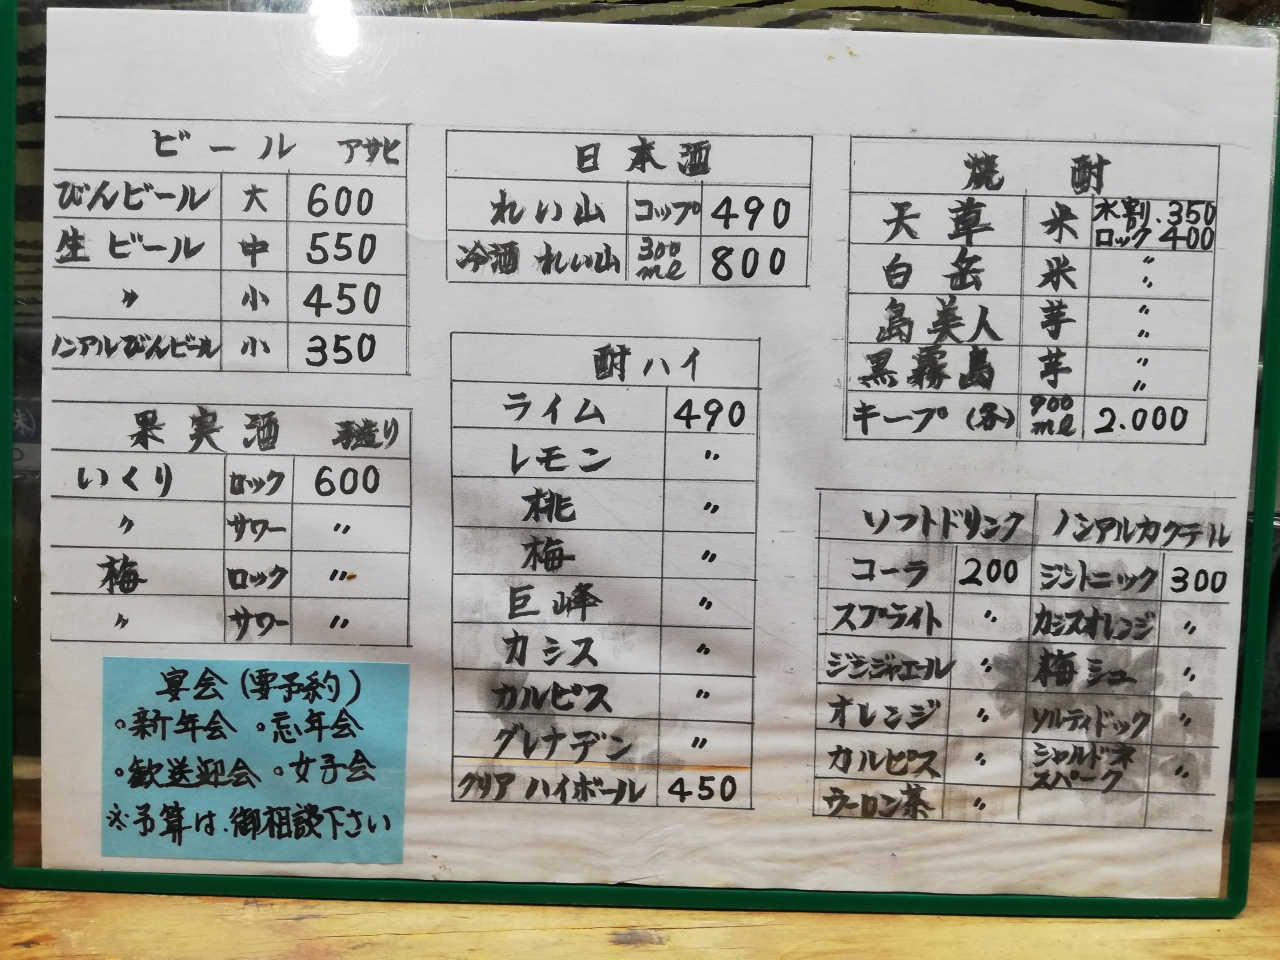 ビール アサヒ
びんビール 大 600
生ビール 中 550
〃 小 450
ノンアルびんビール 小 350
果実酒 手造り
いくり ロック 600
〃 サワー 〃
梅 ロック 〃
〃 サワー 〃
宴会(要予約)
。新年会 。忘年会
。歓送迎会 。女子会
※予算は、御相談下さい
日本酒
れい山 コップ 490
冷酒 れい山 300ml 800
酎ハイ
ライム 490
レモン 〃
桃 〃
梅 〃
巨峰 〃
カシス 〃
カルピス 〃
グレナデン 〃
クリアハイボール 450
焼酎
天草 米 水割.350
ロック 400
白岳 米 〃
〃
島美人 芋 〃
〃
黒霧島 芋 〃
〃
キープ(各) 900ml 2.000
ソフトドリンク ノンアルカクテル
コーラ 200 ジントニック 300
スプライト 〃 カシスオレンジ 〃
ジンジャエール 〃 梅シュー 〃
オレンジ 〃 ソルティドック 〃
カルピス 〃 シャルドネ
スパーク 〃
ウーロン茶 〃